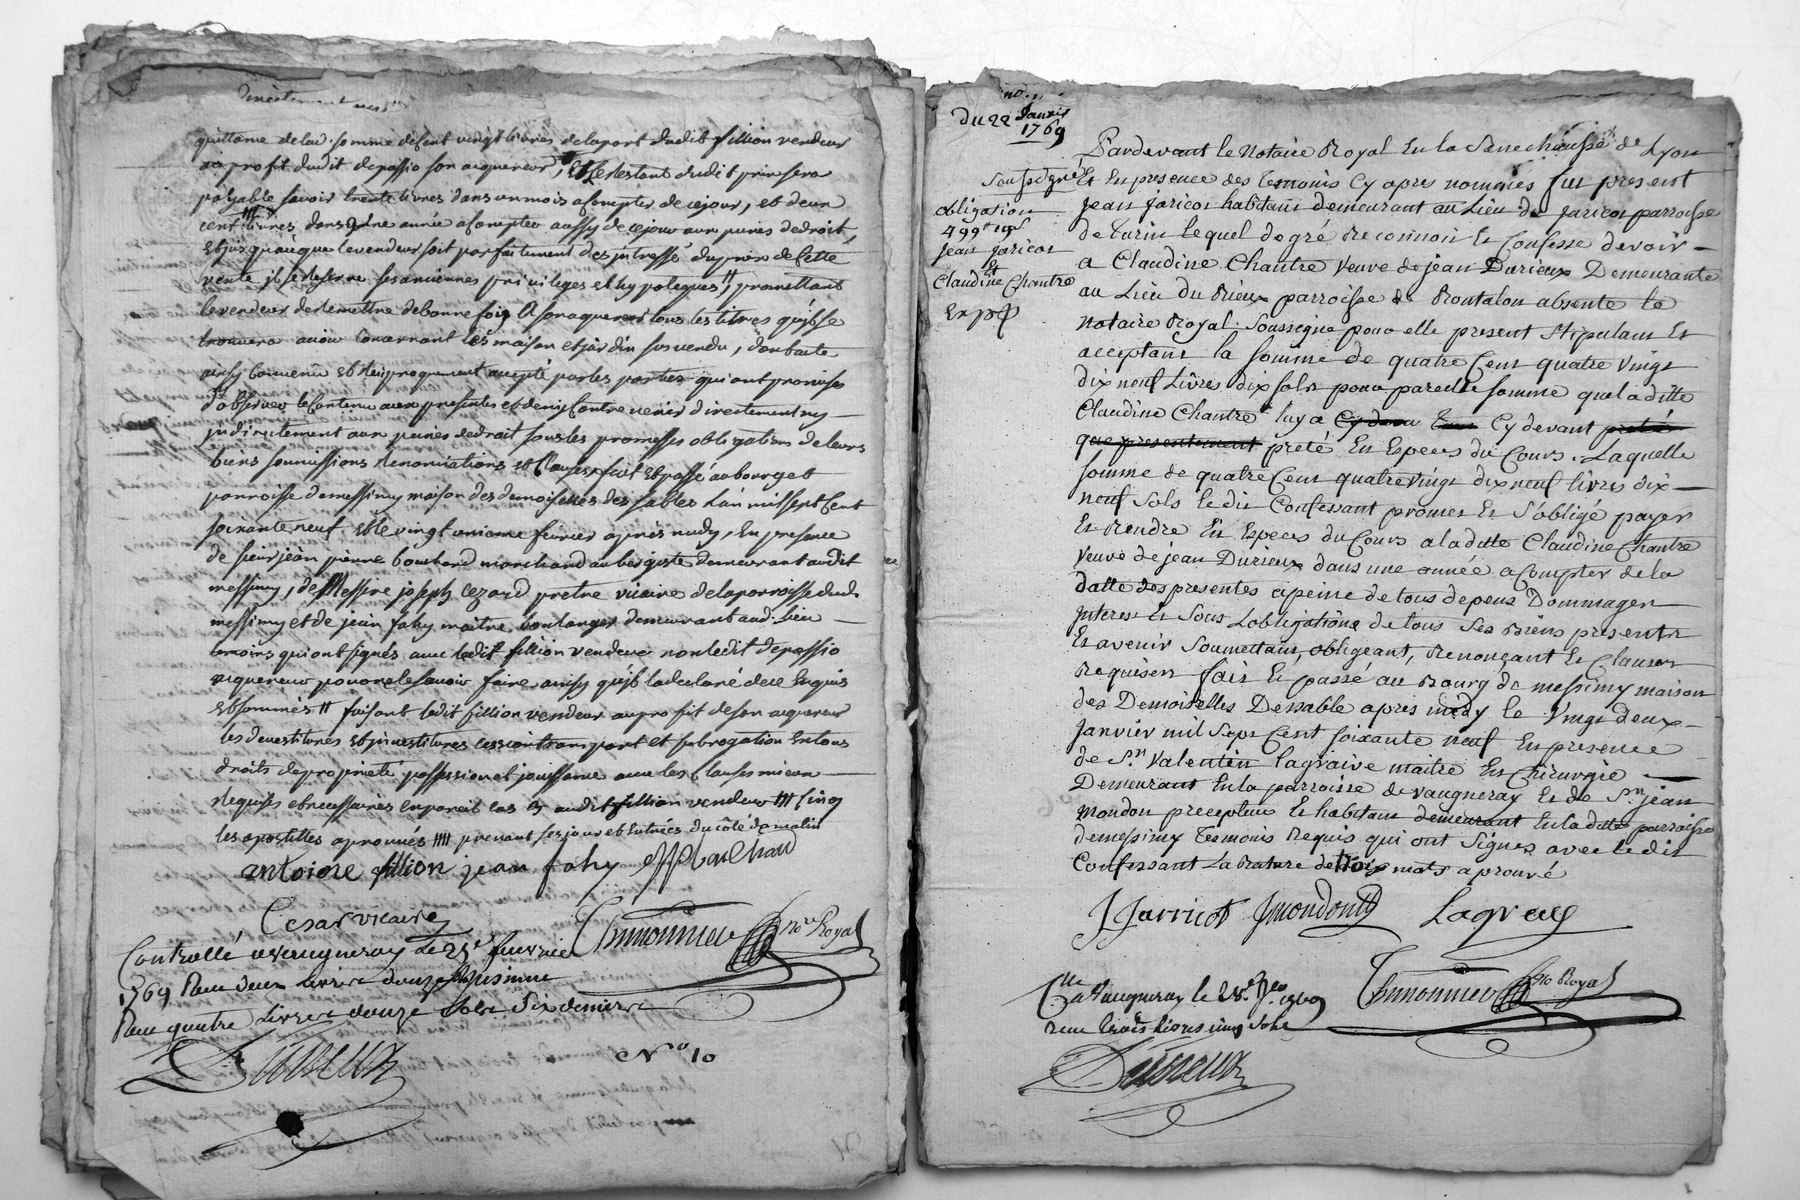 quittance de lad. somme de cent vingt livres de la part dudit fillion vendeur
au profit dudit depassio son acquereur, et le restant dudit prix sera
payable savoir trente livres dans un mois a Compter de ce jour, et deux
cent livres dans une année a Compter aussy de ce jour aux peines de droit,
et jusqu'a ce que le vendeur soit parfaitement desinteressé du prix de cette
vente il se reserve ses anciennes privileges et hypoteques, promettant
le vendeur de remettre de bonne foi a son aquereur tous les titres qu'il se
trouvera avoir Concernant les maison et jardin sus vendu, dont acte
ainsy Convenu et reciproquement accepté par les parties qui ont promises
d'observer le Contenu aux presentes et de n'y Contrevenir directement ny
indirectement aux peines de droit sous les promesses obligations de leurs
biens soumissions renonciations et Clauses fait et passé au bourg et
parroisse de messimy maison des demoiselles des sables L'an mil sept Cent
soixante neuf et le vingt unieme fevrier après midy, En presence
de sieur jean pierre bouchard marchand aubergiste demeurant audit
messimy, de Messire joseph Cezard pretre vicaire de la parroisse dud.
messimy et de jean fahy maitre boulanger demeurant aud. lieu
temoins qui ont signés avec ledit fillion vendeur non ledit depassio
aquereur pour ne le savoir faire ainsy qu'il la declaré de ce Enquis
et sommés faisant ledit fillion vendeur au profit de son aquereur
les devestitures et investitures cession transport et subrogation En tous
droits de proprieté possession et jouissance avec les Clauses mieux
requises et necessaires en pareil cas audit fillion vendeur Cinq
les apostilles aprouvés prenant ses jour et Entrées du côté de matin
antoine fillion jean fahy
Cesar vicaire
Thimonnier no.re Royal
Controllé a Vaugneray Le 25e fevrier
1769 Reçu deux Livres douze
Reçu quatre Livres douze sols Six deniers
Durieux
No 10
du 22 Janvier
1769
obligation
499# 19s
jean jaricot
Et
Claudine Chantre
Exp
Pardevant le Notaire Royal En la Senechaussée de Lyon
Soussigné Et En presence des temoins Cy apres nommés fut present
jean jaricot habitant demeurant au Lieu de jaricot parroisse
de turin lequel de gré Reconnoit Et Confesse devoir
a Claudine Chantre Veuve de jean Durieux Demeurante
au Lieu du Rieux parroisse de Rontalon absente le
Notaire Royal Soussigné pour elle present Stipulant Et
acceptant la somme de quatre Cent quatre Vingt
dix neuf Livres dix sols pour pareille somme que laditte
Claudine Chantre luy a Cy devant
que presentement preté En Especes du Cours. Laquelle
somme de quatre Cent quatre Vingt dix neuf livres dix
neuf Sols ledit Confessant promet Et S'obligé payer
Et Rendre En Especes du Cours a laditte Claudine Chantre
Veuve de jean Durieux dans une année a Compter de la
datte des presentes a peine de tous depens Dommages
interets Et Sous Lobligations de tous Ses Biens presents
Et avenir Soumettant, obligeant, Renonçant Et Clauses
Requises fait Et passé au Bourg de messimy maison
des Demoiselles Dessable apres midy le Vingt deux
janvier mil Sept Cent soixante neuf En presence
de Sr. Valentin lagraive maitre En Chirurgie
Demeurant En la parroisse de Vaugneray Et de Sr. jean
mondon precepteur Et habitant demeurant En laditte parroisse
de messimy temoins Requis qui ont Signes avec ledit
Confessant La Rature de trois mots aprouvé
J Jarricot Jmondon Lagraive
Thimonnier no Royal
C.lle a Vaugneray le 25e 1769
recu trois Livres cinq Sols
Durieux